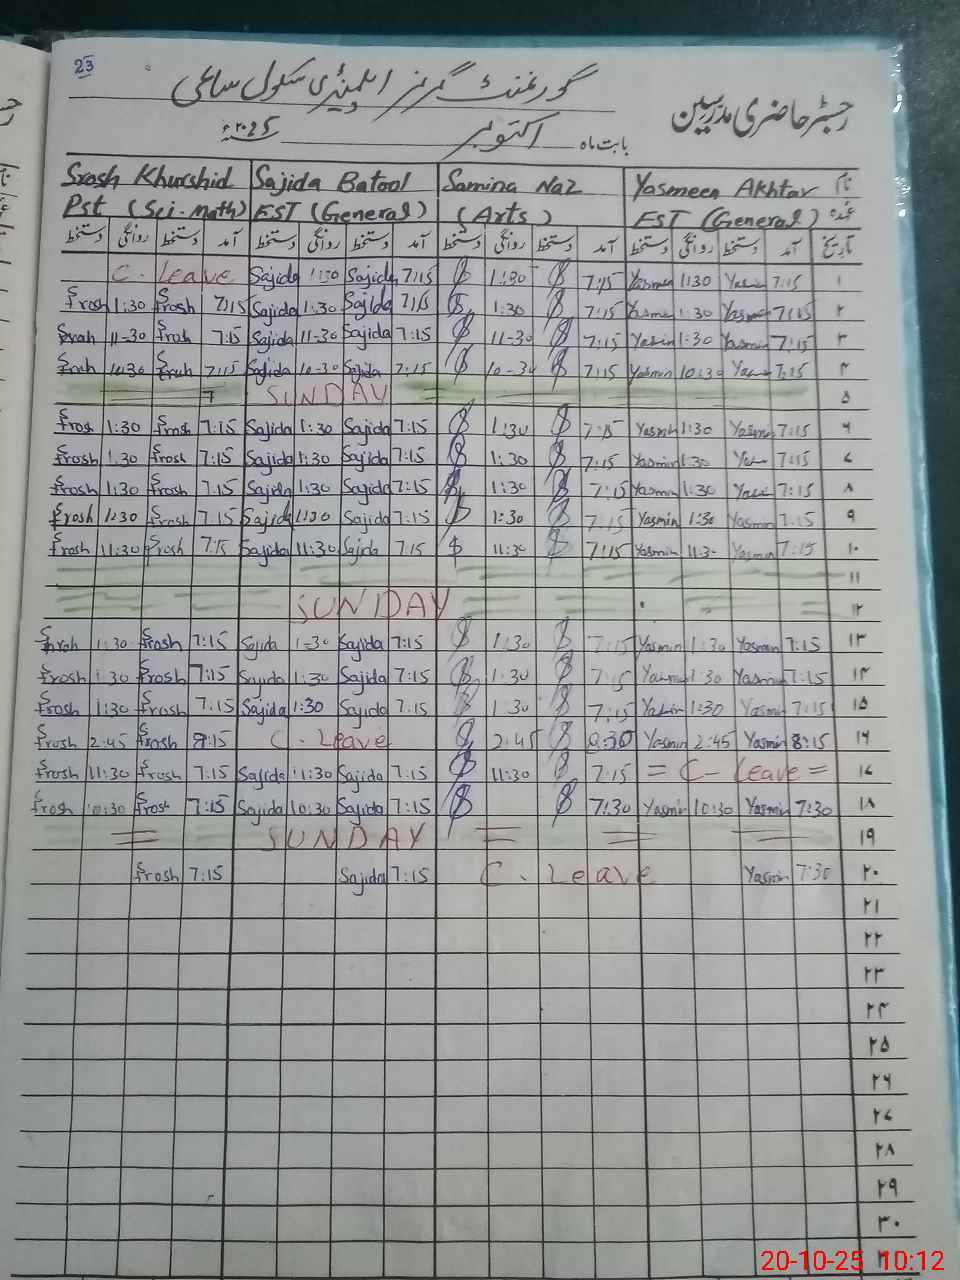 23
گورنمنٹ گرلز ایلیمنٹری سکول
رجسٹر حاضری مدرسین
بابت ماہ اکتوبر ۲۰25ء
Srosh Khurshid Sajida Batool Samina Naz Yasmeen Akhtar نام
Pst (Sci-Math) EST (General) (Arts) EST (General) عہدہ
دستخط روانگی دستخط آمد دستخط روانگی دستخط آمد دستخط روانگی دستخط آمد دستخط روانگی دستخط آمد تاریخ
C. Leave Sajida 1:30 Sajida 7:15 1:30 7:15 1:30 7:15 ۱
Srosh 1:30 Srosh 7:15 Sajida 1:30 Sajida 7:15 1:30 7:15 1:30 7:15 ۲
11-30 7:15 Sajida 11-30 Sajida 7:15 11-30 7:15 1:30 Yasmin 7:15 ۳
10:30 7:15 Sajida 10-30 Sajida 7:15 10-30 7:15 Yasmin 10:30 7:15 ۴
SUNDAY ۵
Srosh 1:30 Srosh 7:15 Sajida 1:30 Sajida 7:15 1:30 7:15 Yasmin 1:30 Yasmin 7:15 ۶
Srosh 1:30 Srosh 7:15 Sajida 1:30 Sajida 7:15 1:30 7:15 Yasmin 1:30 7:15 ۷
Srosh 1:30 Srosh 7:15 Sajida 1:30 Sajida 7:15 1:30 7:15 Yasmin 1:30 7:15 ۸
Srosh 1:30 Srosh 7:15 Sajida 1:30 Sajida 7:15 1:30 7:15 Yasmin 1:30 Yasmin 7:15 ۹
Srosh 11:30 Srosh 7:15 Sajida 11:30 Sajida 7:15 11:30 7:15 Yasmin 11:30 Yasmin 7:15 ۱۰
۱۱
SUNDAY ۱۲
Srosh 1:30 Srosh 7:15 Sajida 1-30 Sajida 7:15 1:30 7:15 Yasmin 1:30 Yasmin 7:15 ۱۳
Srosh 1:30 Srosh 7:15 Sajida 1:30 Sajida 7:15 1:30 7:15 Yasmin 1:30 Yasmin 7:15 ۱۴
Srosh 1:30 Srosh 7:15 Sajida 1:30 Sajida 7:15 1:30 7:15 Yasmin 1:30 Yasmin 7:15 ۱۵
Srosh 2:45 Srosh 8:15 C. Leave 2:45 8:30 Yasmin 2:45 Yasmin 8:15 ۱۶
Srosh 11:30 Srosh 7:15 Sajida 11:30 Sajida 7:15 11:30 7:15 = C- Leave = ۱۷
Srosh 10:30 Srosh 7:15 Sajida 10:30 Sajida 7:15 7:30 Yasmin 10:30 Yasmin 7:30 ۱۸
= SUNDAY = = = ۱۹
Srosh 7:15 Sajida 7:15 C. Leave Yasmin 7:30 ۲۰
۲۱
۲۲
۲۳
۲۴
۲۵
۲۶
۲۷
۲۸
۲۹
۳۰
20-10-25 10:12